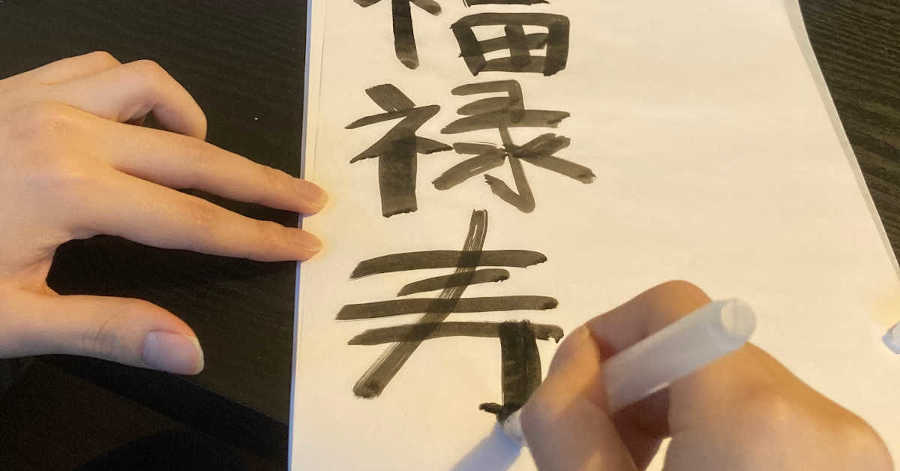 福
禄
寿